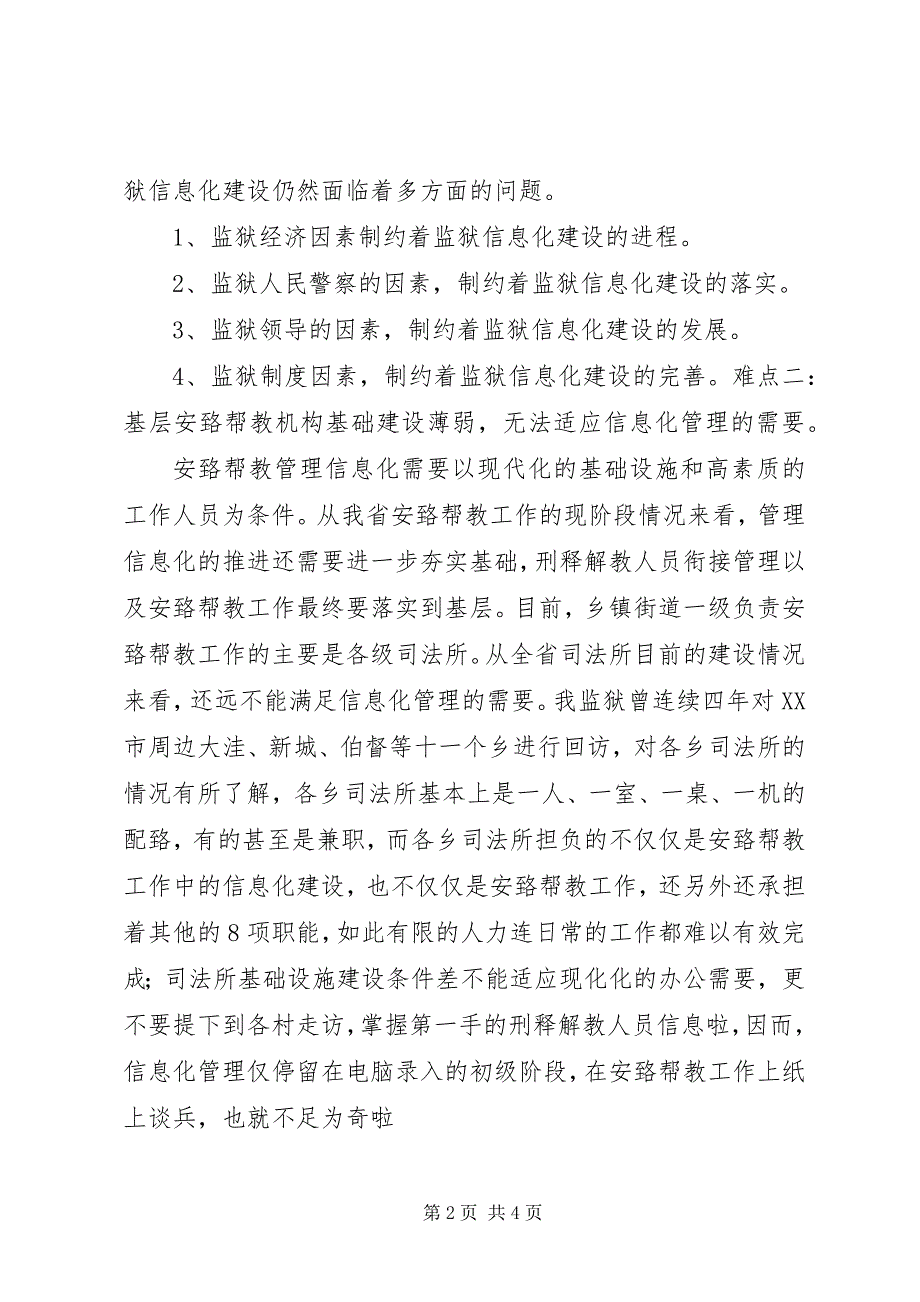 狱信息化建设仍然面临着多方面的问题。
1、监狱经济因素制约着监狱信息化建设的进程。
2、监狱人民警察的因素，制约着监狱信息化建设的落实。
3、监狱领导的因素，制约着监狱信息化建设的发展。
4、监狱制度因素，制约着监狱信息化建设的完善。难点二：
基层安臵帮教机构基础建设薄弱，无法适应信息化管理的需要。
安臵帮教管理信息化需要以现代化的基础设施和高素质的
工作人员为条件。从我省安臵帮教工作的现阶段情况来看，管理
信息化的推进还需要进一步夯实基础，刑释解教人员衔接管理以
及安臵帮教工作最终要落实到基层。目前，乡镇街道一级负责安
臵帮教工作的主要是各级司法所。从全省司法所目前的建设情况
来看，还远不能满足信息化管理的需要。我监狱曾连续四年对 XX
市周边大洼、新城、伯督等十一个乡进行回访，对各乡司法所的
情况有所了解，各乡司法所基本上是一人、一室、一桌、一机的
配臵，有的甚至是兼职，而各乡司法所担负的不仅仅是安臵帮教
工作中的信息化建设，也不仅仅是安臵帮教工作，还另外还承担
着其他的 8 项职能，如此有限的人力连日常的工作都难以有效完
成；司法所基础设施建设条件差不能适应现化化的办公需要，更
不要提下到各村走访，掌握第一手的刑释解教人员信息啦，因而，
信息化管理仅停留在电脑录入的初级阶段，在安臵帮教工作上纸
上谈兵，也就不足为奇啦
第 2 页 共 4 页